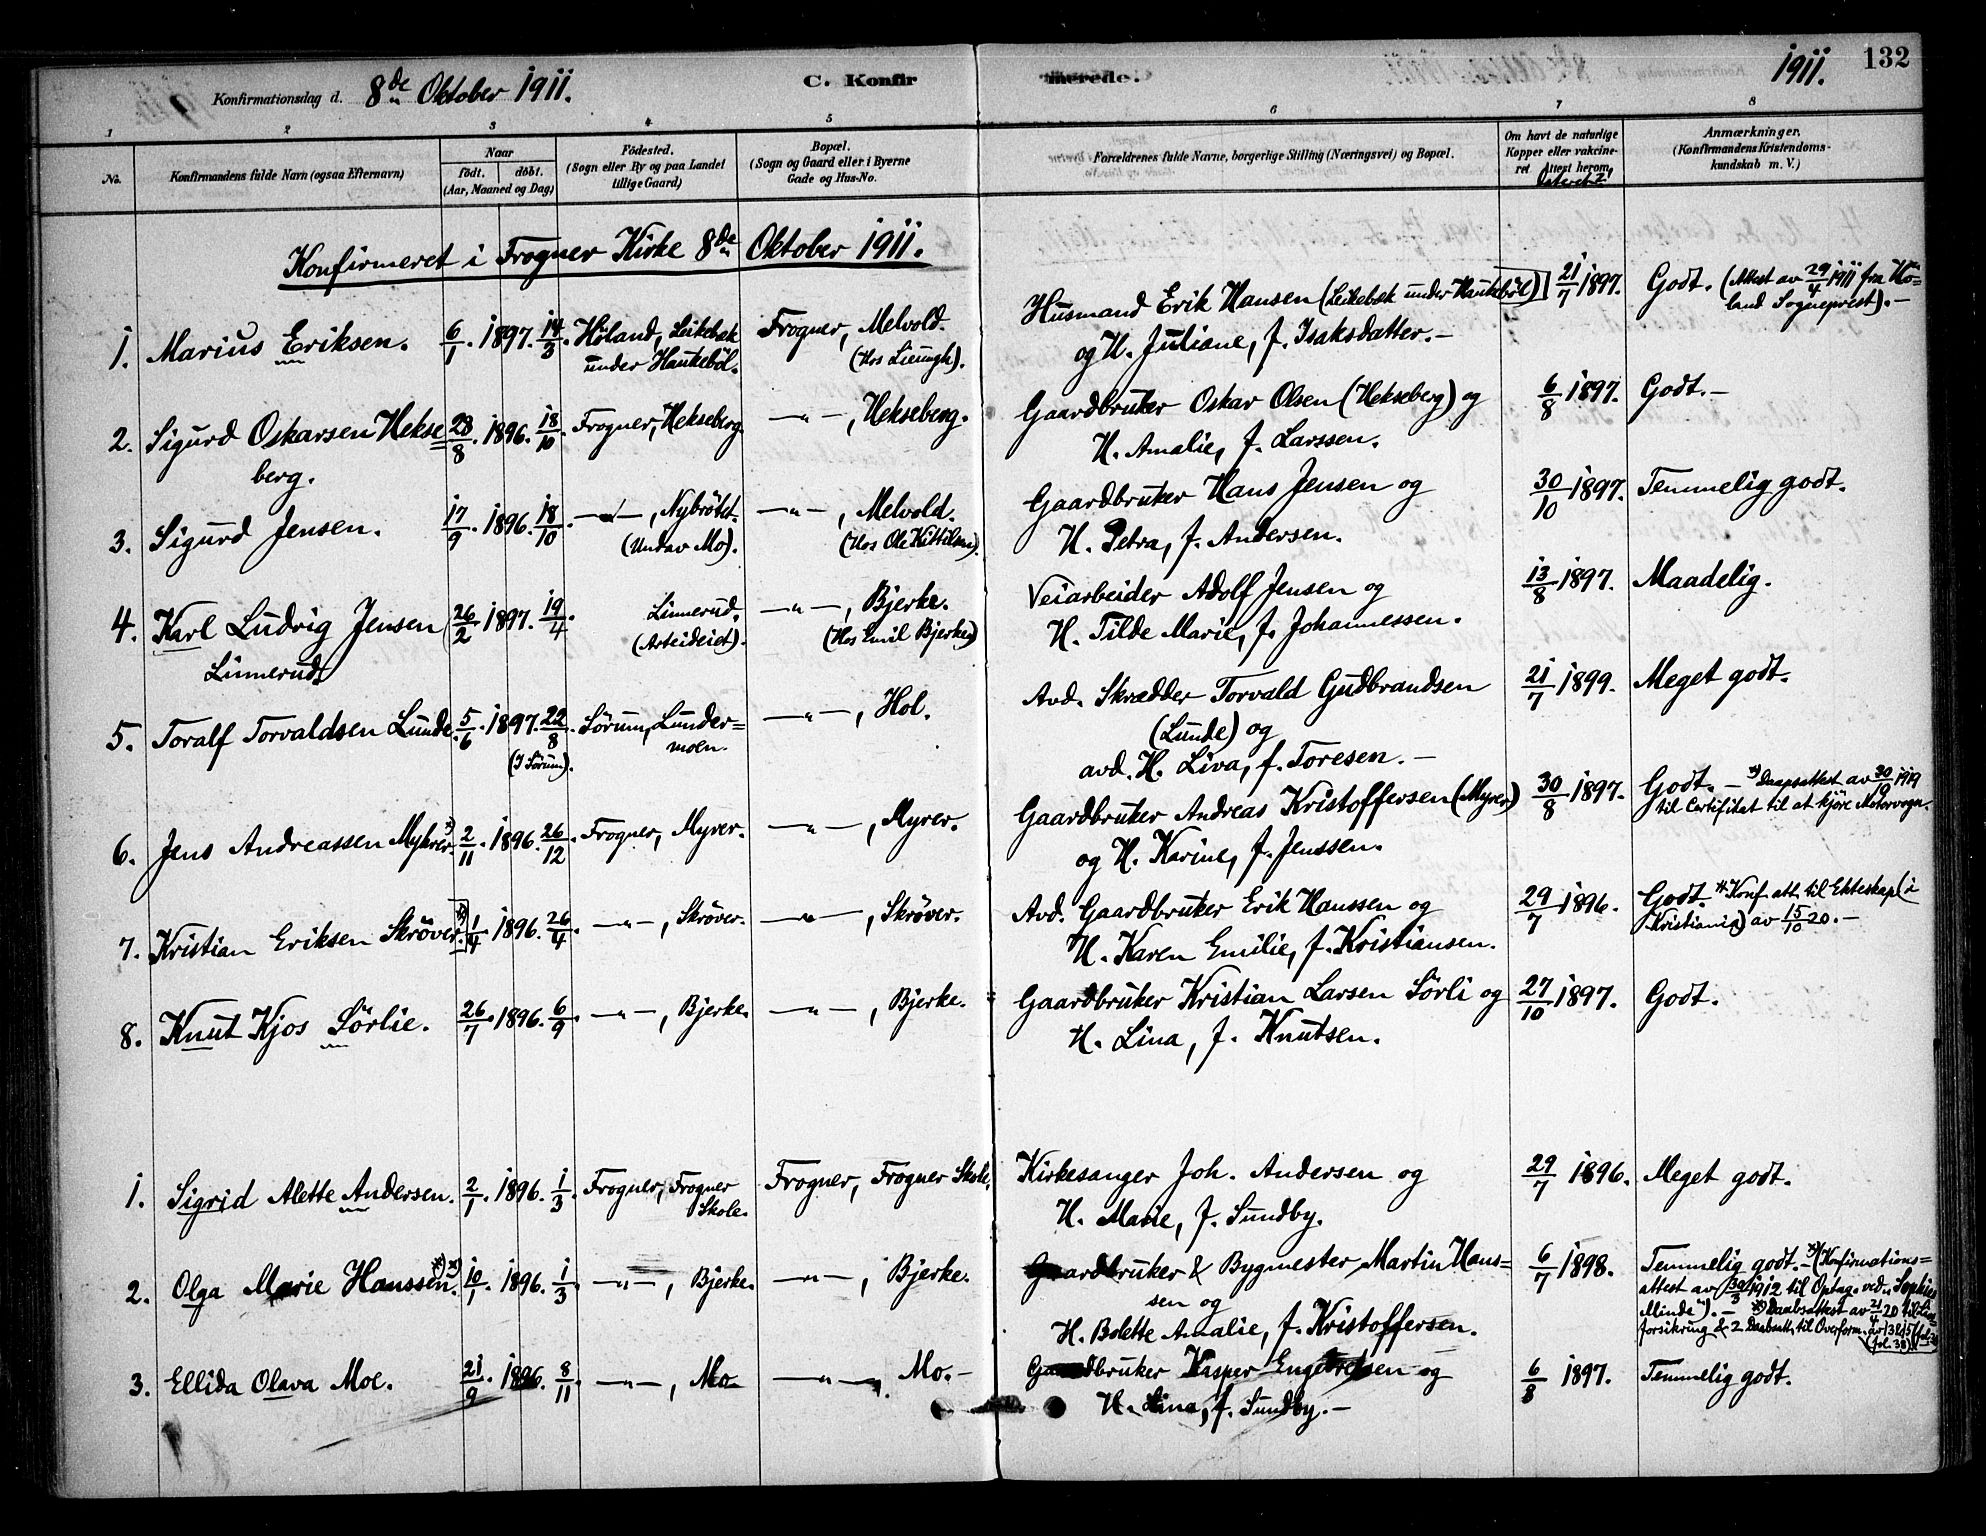 1911. 132
Konfirmationsdag d. 8de Oktober 1911. C. Konfir merede.
1 2 3 4 5 6 7 8
No.
Konfirmandens fulde Navn (ogsaa Efternavn)
Naar
født. døbt.
(Aar, Maaned og Dag)
Födested.
(Sogn eller By og paa Landet
tillige Gaard)
Bopæl.
(Sogn og Gaard eller i Byerne
Gade og Hus-No.
Forældrenes fulde Navne, borgerlige Stilling (Næringsvei) og Bopæl.
Om havt de naturlige
Kopper eller vakcine-
ret Attest herom.
Dateret?
Anmærkninger.
(Konfirmandens Kristendoms-
kundskab m. V.)
Konfirmeret i Frogner Kirke 8de Oktober 1911.
1. Marius Eriksen. 6/1. 1897. 14/3. Höland, Leikebæk Frogner, Melvold. Husmand Erik Hansen (Leikebæk under Haukeböl) 21/7 1897. Godt. (Attest av 29/4 1911 fra Hö=
under Haukeböl. (Hos Lieungh). og H. Juliane, f. Isaksdatter. – land Sogneprest). –
2. Sigurd Oskarsen Hekse 23/8. 1896. 18/10. Frogner, Hekseberg. –"–, Hekseberg. Gaardbruker Oskar Olsen (Hekseberg) og 6/8 1897. Godt. –
berg. H. Amalie, f. Larssen.
3. Sigurd Jensen. 17/9. 1896. 18/10. –"–, Nybröttet. –"–, Melvold. Gaardbruker Hans Jensen og 30/10 1897. Temmelig godt.
(Undav Mo). (Hos Ole Kittilsen). H. Petra, f. Andersen.
4. Karl Ludvig Jensen 26/2. 1897. 19/4. Linnerud. –"–, Bjerke. Veiarbeider Adolf Jensen og 13/8 1897. Maadelig.
Linnerud (Arbeideiet). (Hos Emil Bjerke) H. Tilde Marie, f. Johannessen.
5. Toralf Torvaldsen Lunde. 5/6. 1897. 22/8. Sörum, Lunder= –"–, Hol. Avd. Skrædder Torvald Gudbrandsen 21/7 1899. Meget godt.
(I Sörum). moen. (Lunde) og
avd. H. Liva, f. Toresen. –
6. Jens Andreassen Myhrer. *) 2/11. 1896. 26/12. Frogner, Myrer. –"–, Myrer. Gaardbruker Andreas Kristoffersen (Myrer) 30/8 1897. Godt. – *) Daapsattest av 30/9 1919
og H. Karine, f. Jenssen. til Certifikat til at kjöre Motorvogn.
7. Kristian Eriksen Skröver. *) 1/4. 1896. 26/4. –"–, Skröver. –"–, Skröver. Avd. Gaardbruker Erik Hanssen og 29/7 1896. Godt. *Konf. att. til Ekteskap (i
H. Karen Emilie, f. Kristiansen. Kristiania) av 15/10 20. –
8. Knut Kjos Sörlie. 26/7. 1896. 6/9. –"–, Bjerke. –"–, Bjerke. Gaardbruker Kristian Larsen Sörli og 27/10 1897. Godt.
H. Lina, f. Knutsen.
1. Sigrid Alette Andersen. 2/1. 1896. 1/3. Frogner, Frogner Frogner, Frogner Skole. Kirkesanger Joh. Andersen og 29/7 1896. Meget godt.
Skole. H. Marie, f. Sundby.
2. Olga Marie Hanssen. *) *) 10/1. 1896. 1/3. –"–, Bjerke. –"–, Bjerke. Gaardbruker & Bygmester Martin Hans= 6/7 1898. Temmelig godt. – *) (Konfirmations=
sen og attest av 30/3 1912 til Optag. ved „Sophies
H. Bolette Amalie, f. Kristoffersen. Minde"). – *) Daabsattest av 21/4 20 til
forsikring & 2 Daabsatt. til Overform.
(fol. 38)
3. Ellida Olava Moe. 21/9. 1896. 8/11. –"–, Mo. –"–, Mo. – Gaardbruker Kasper Engebretsen og 6/8 1897. Temmelig godt.
H. Lina, f. Sundby. –